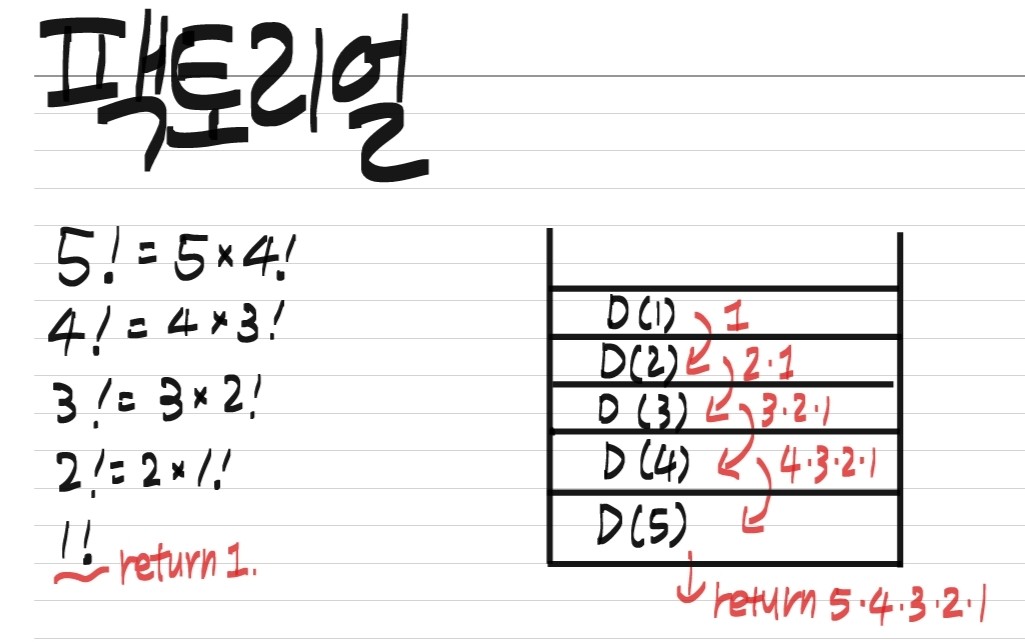 팩토리얼
5! = 5 × 4!
4! = 4 × 3!
3! = 3 × 2!
2! = 2 × 1!
1! return 1.
D(1) 1
D(2) 2·1
D(3) 3·2·1
D(4) 4·3·2·1
D(5)
return 5·4·3·2·1